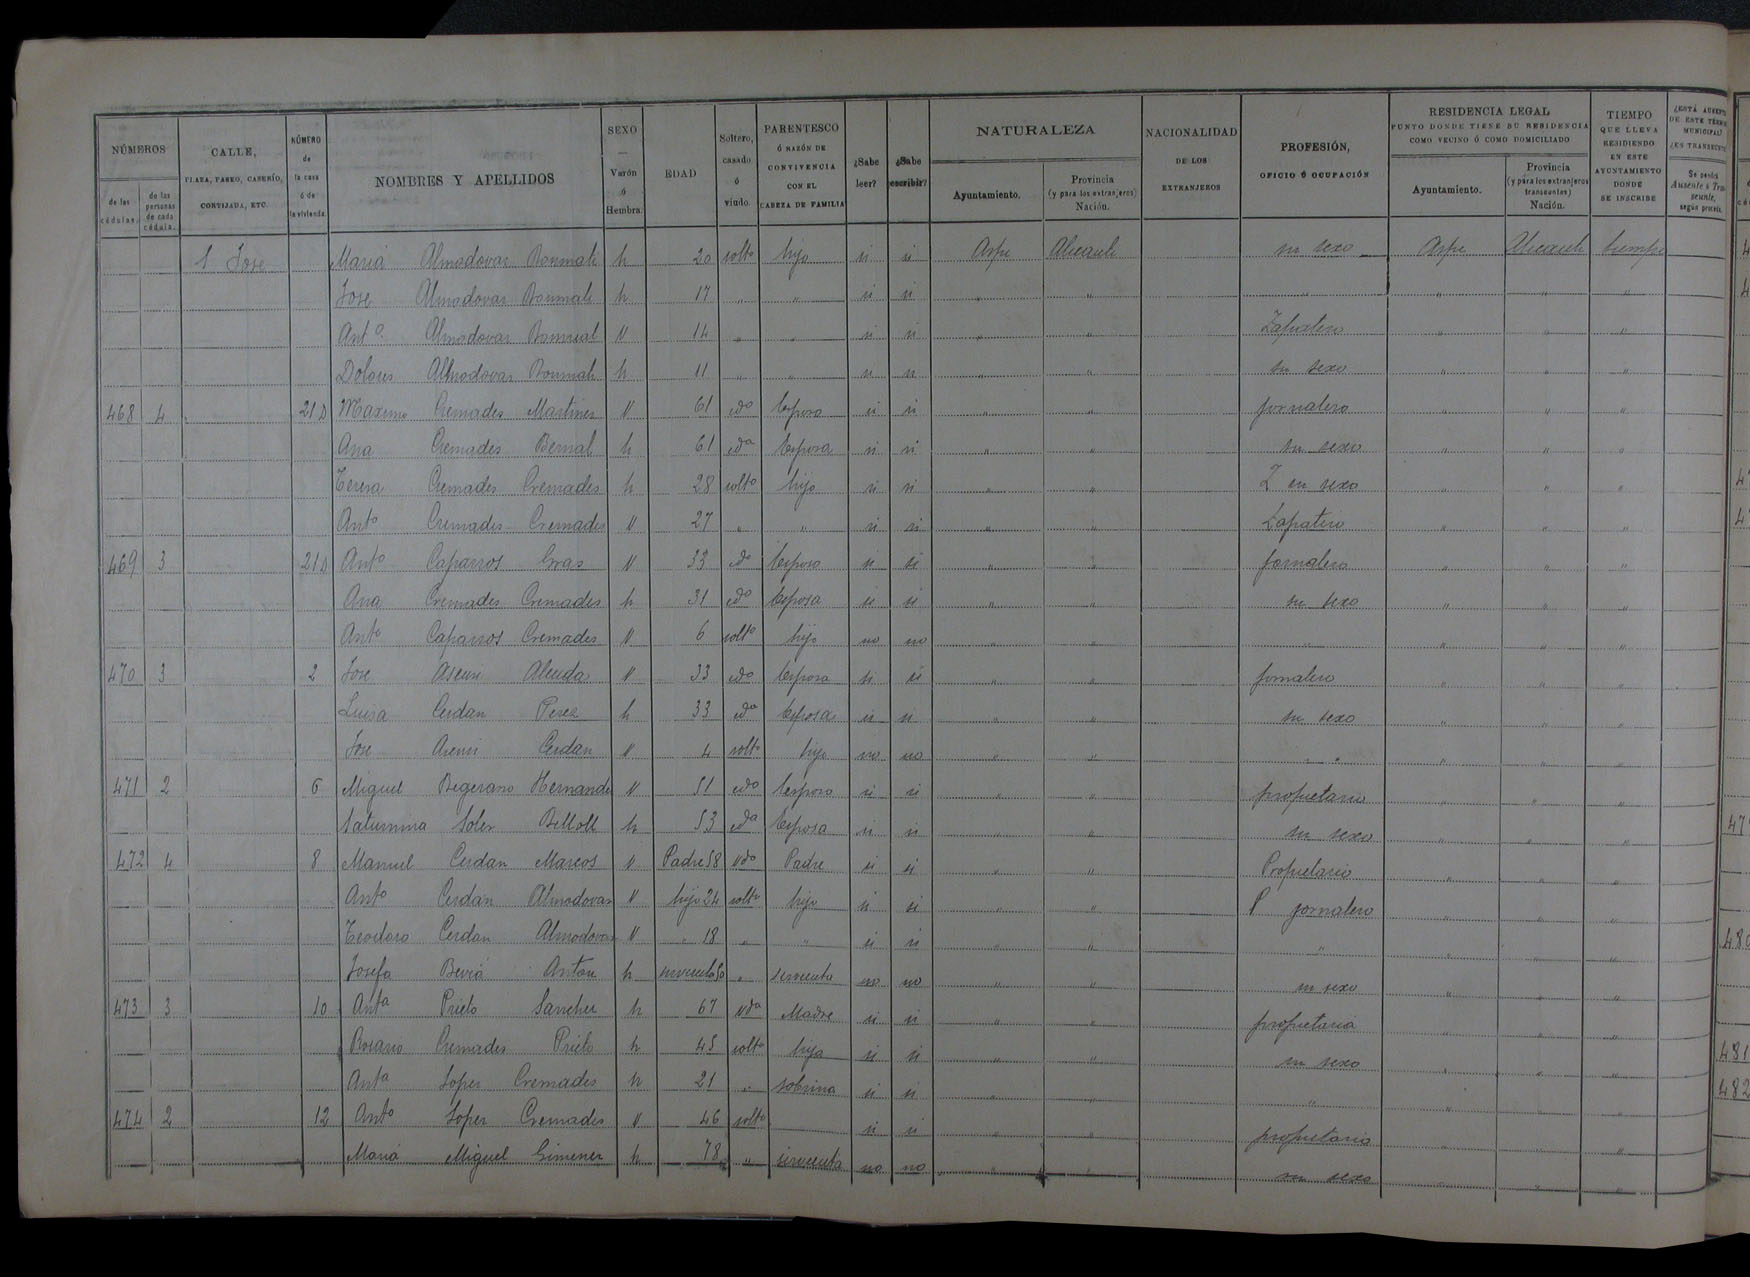 NÚMEROS
de las cédulas.
de las personas de cada cédula.
CALLE, PLAZA, PASEO, CASERÍO, CORTIJADA, ETC.
NÚMERO de la casa ó de la vivienda.
NOMBRES Y APELLIDOS
SEXO — Varón ó Hembra.
EDAD
Soltero, casado ó viudo.
PARENTESCO Ó RAZÓN DE CONVIVENCIA CON EL CABEZA DE FAMILIA
¿Sabe leer?
¿Sabe escribir?
NATURALEZA
Ayuntamiento.
Provincia (y para los extranjeros) Nación.
NACIONALIDAD DE LOS EXTRANJEROS
PROFESIÓN, OFICIO Ó OCUPACIÓN
RESIDENCIA LEGAL
PUNTO DONDE TIENE SU RESIDENCIA COMO VECINO Ó COMO DOMICILIADO
Ayuntamiento.
Provincia (y para los extranjeros transeuntes) Nación.
TIEMPO QUE LLEVA RESIDIENDO EN ESTE AYUNTAMIENTO DONDE SE INSCRIBE
S Jose Maria Almodovar Bonmati h 20 solto hijo si si Aspe Alicante su sexo Aspe Alicante tiempo
Jose Almodovar Bonmati h 17 " " si si " " " " " "
Anto Almodovar Bonmati V 14 " " si si " " Zapatero " " "
Dolores Almodovar Bonmati h 11 " " si si " " su sexo " " "
468 4 21D Maximo Cremades Martinez V 61 cdo Esposo si si " " jornalero " " "
Ana Cremades Bernal h 61 cda Esposa si si " " su sexo " " "
Teresa Cremades Cremades h 28 solto hijo si si " " su sexo " " "
Anto Cremades Cremades V 27 " " si si " " Zapatero " " "
469 3 21D Anto Caparros Gras V 33 cdo Esposo si si " " jornalero " " "
Ana Cremades Cremades h 31 cdo Esposa si si " " su sexo " " "
Anto Caparros Cremades V 6 solto hijo no no " " " " " "
470 3 2 Jose Asensi V 33 cdo Esposo si si " " jornalero " " "
Luisa Cerdan Perez h 33 cda Esposa si si " " su sexo " " "
Jose Asensi Cerdan V 4 solto hijo no no " " " " " "
471 2 6 Miguel Begerano Hernande V 51 cdo Esposo si si " " propietario " " "
Saturnina Soler Belloll h 53 cda Esposa si si " " su sexo " " "
472 4 8 Manuel Cerdan Marcos V Padre 58 Vdo Padre si si " " Propietario " " "
Anto Cerdan Almodovar V hijo 24 solto hijo si si " " P jornalero " " "
Teodoro Cerdan Almodovar V " 18 " " si si " " " " " "
Josefa Bevia Anton h sirvienta 50 " sirvienta no no " " su sexo " " "
473 3 10 Anta Prieto Sanchez h 67 Vda Madre si si " " propietaria " " "
Rosario Cremades Prieto h 45 solto hija si si " " su sexo " " "
Anta Lopez Cremades h 21 " sobrina si si " " " " " "
474 2 12 Anto Lopez Cremades V 46 solto si si " " propietario " " "
Maria Miguel Gimenez h 78 " sirvienta no no " " su sexo " " "
480
481
482